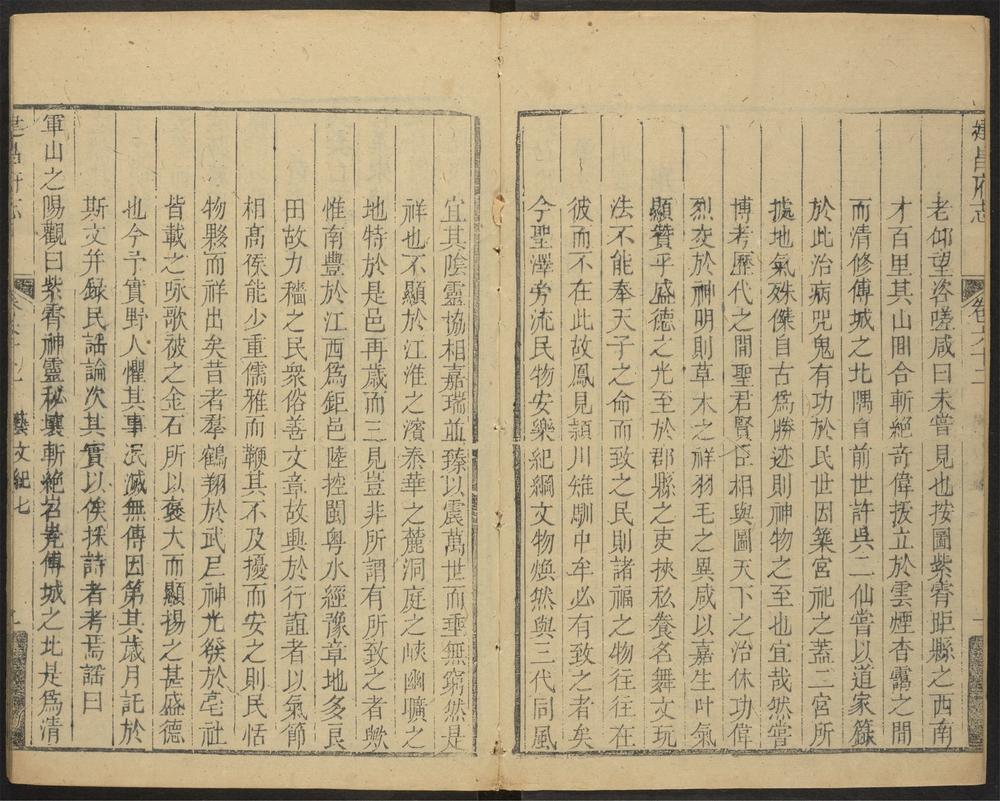 建昌府志
卷六十一
老仰望咨嗟咸曰未嘗見也按圖紫霄距縣之西南
才百里其山囬合斬絶竒偉㧞立於雲煙杳靄之間
而清修傅城之北隅自前世許吳二仙嘗以道家籙
於此治病咒鬼有功於民世因築宮祀之蓋二宮所
據地氣殊傑自古爲勝迹則神物之至也宜哉然嘗
博考歷代之間聖君賢臣相與圖天下之治休功偉
烈交於神明則草木之祥羽毛之異咸以嘉生叶氣
顯贊乎盛德之光至於郡縣之吏挾私養名舞文玩
法不能奉天子之命而致之民則諸福之物往往在
彼而不在此故鳳見潁川雉馴中牟必有致之者矣
今聖澤旁流民物安樂紀綱文物煥然與三代同風
宜其隂靈協相嘉瑞並臻以震萬世而垂無窮然是
祥也不顯於江淮之濱泰華之麓洞庭之峽幽壙之
地特於是邑再歳而三見豈非所謂有所致之者歟
惟南豐於江西爲鉅邑陸控閩粤水經豫章地多良
田故力穡之民衆俗善文章故興於行誼者以氣節
相髙侯能少重儒雅而鞭其不及擾而安之則民恬
物夥而祥出矣昔者羣鶴翔於武𢀖神光發於亳社
皆載之咏歌被之金石所以褒大而顯揚之甚盛德
也今予實野人懼其事泯滅無傳因第其歳月託於
斯文并録民謡論次其實以俟採詩者考焉謡曰
軍山之陽觀曰紫霄神靈秘壤斬絶岧嶤傅城之北是爲清
建昌府志
藝文紀七